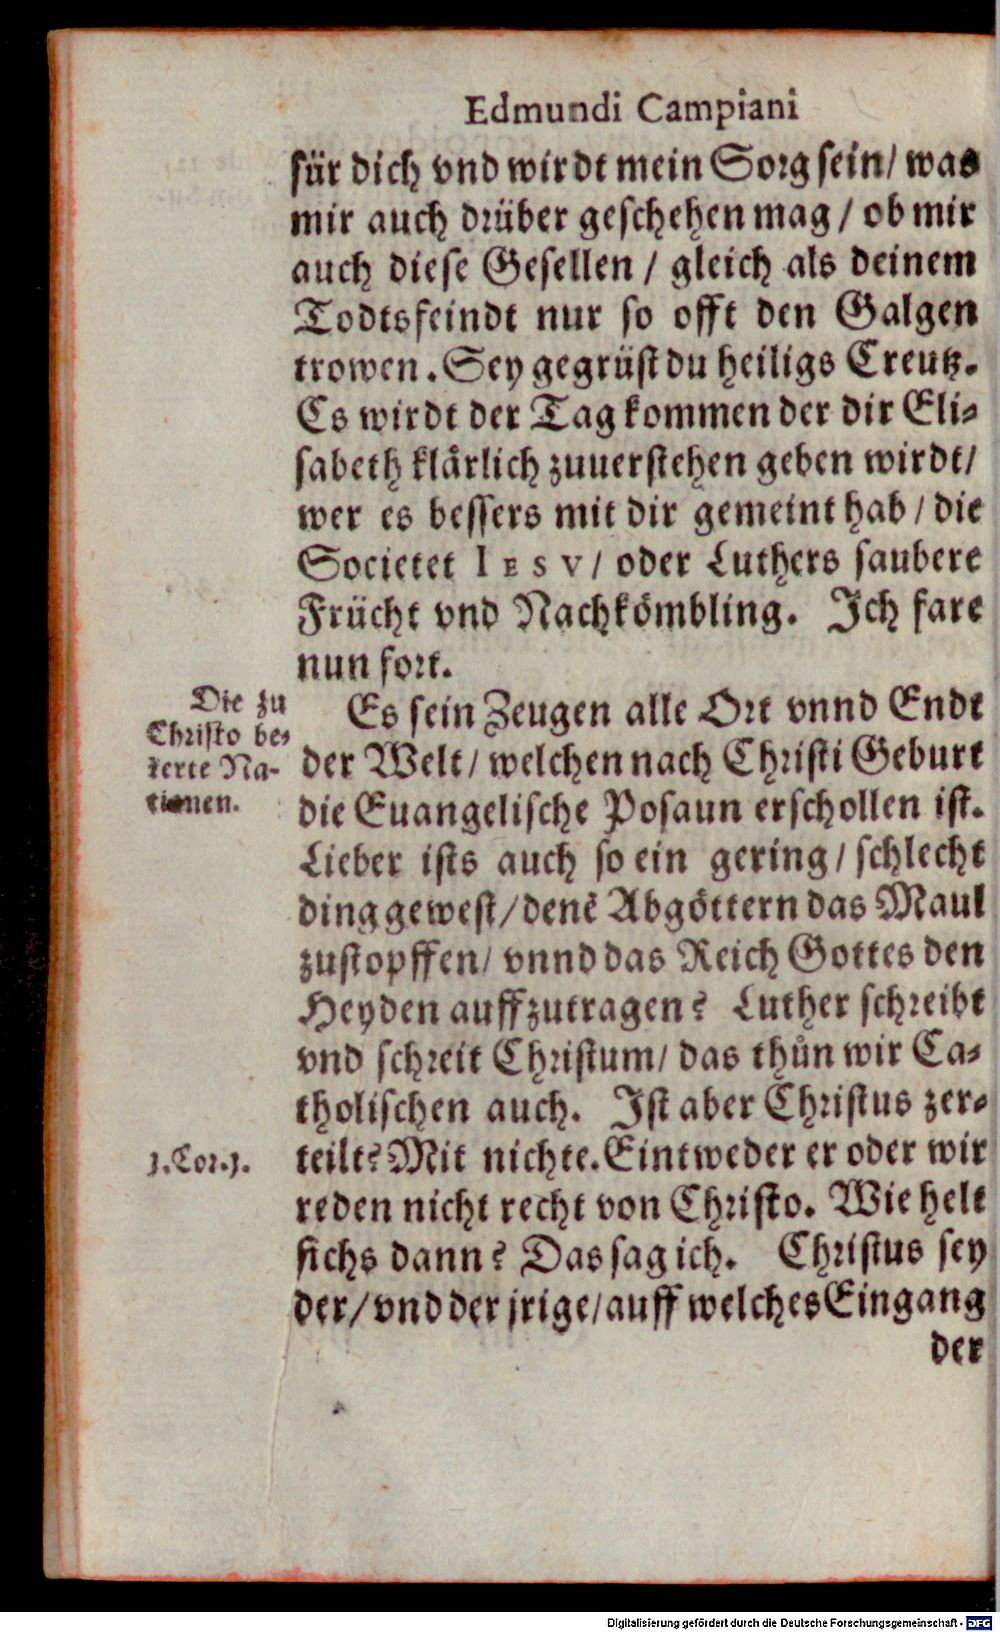 Edmundi Campiani
für dich vnd wirdt mein Sorg sein/ was
mir auch drüber geschehen mag / ob mir
auch diese Gesellen / gleich als deinem
Todtsfeindt nur so offt den Galgen
trowen. Sey gegrüst du heiligs Creutz.
Es wirdt der Tag kommen der dir Eli-
sabeth klårlich zuuerstehen geben wirdt/
wer es bessers mit dir gemeint hab / die
Societet IESV/ oder Luthers saubere
Frücht vnd Nachkömbling. Ich fare
nun fort.
Die zu
Christo be-
kerte Na-
tionen.
Es sein Zeugen alle Ort vnnd Endt
der Welt/ welchen nach Christi Geburt
die Euangelische Posaun erschollen ist.
Lieber ists auch so ein gering/ schlecht
ding gewest/ denē Abgöttern das Maul
zustopffen/ vnnd das Reich Gottes den
Heyden auffzutragen? Luther schreibt
vnd schreit Christum/ das thůn wir Ca-
tholischen auch. Ist aber Christus zer-
1.Cor.1.
teilt? Mit nichte. Eintweder er oder wir
reden nicht recht von Christo. Wie helt
sichs dann? Das sag ich. Christus sey
der/ vnd der jrige/ auff welches Eingang
der
Digitalisierung gefördert durch die Deutsche Forschungsgemeinschaft - DFG